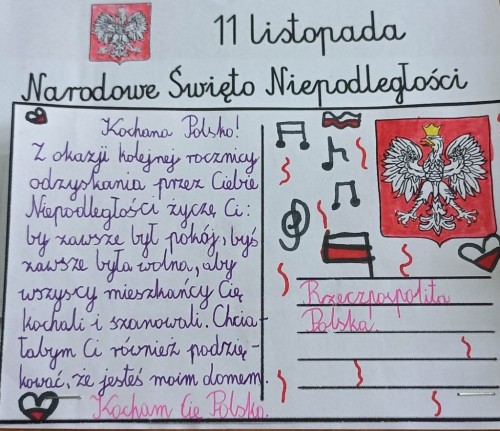 11 listopada
Narodowe Święto Niepodległości
Kochana Polsko!
Z okazji kolejnej rocznicy
odzyskania przez Ciebie
Niepodległości życzę Ci:
by zawsze był pokój, byś
zawsze była wolna, aby
wszyscy mieszkańcy Cię
kochali i szanowali. Chcia-
łabym Ci również podzię-
kować, że jesteś moim domem.
Kocham Cię Polsko.
Rzeczpospolita
Polska.